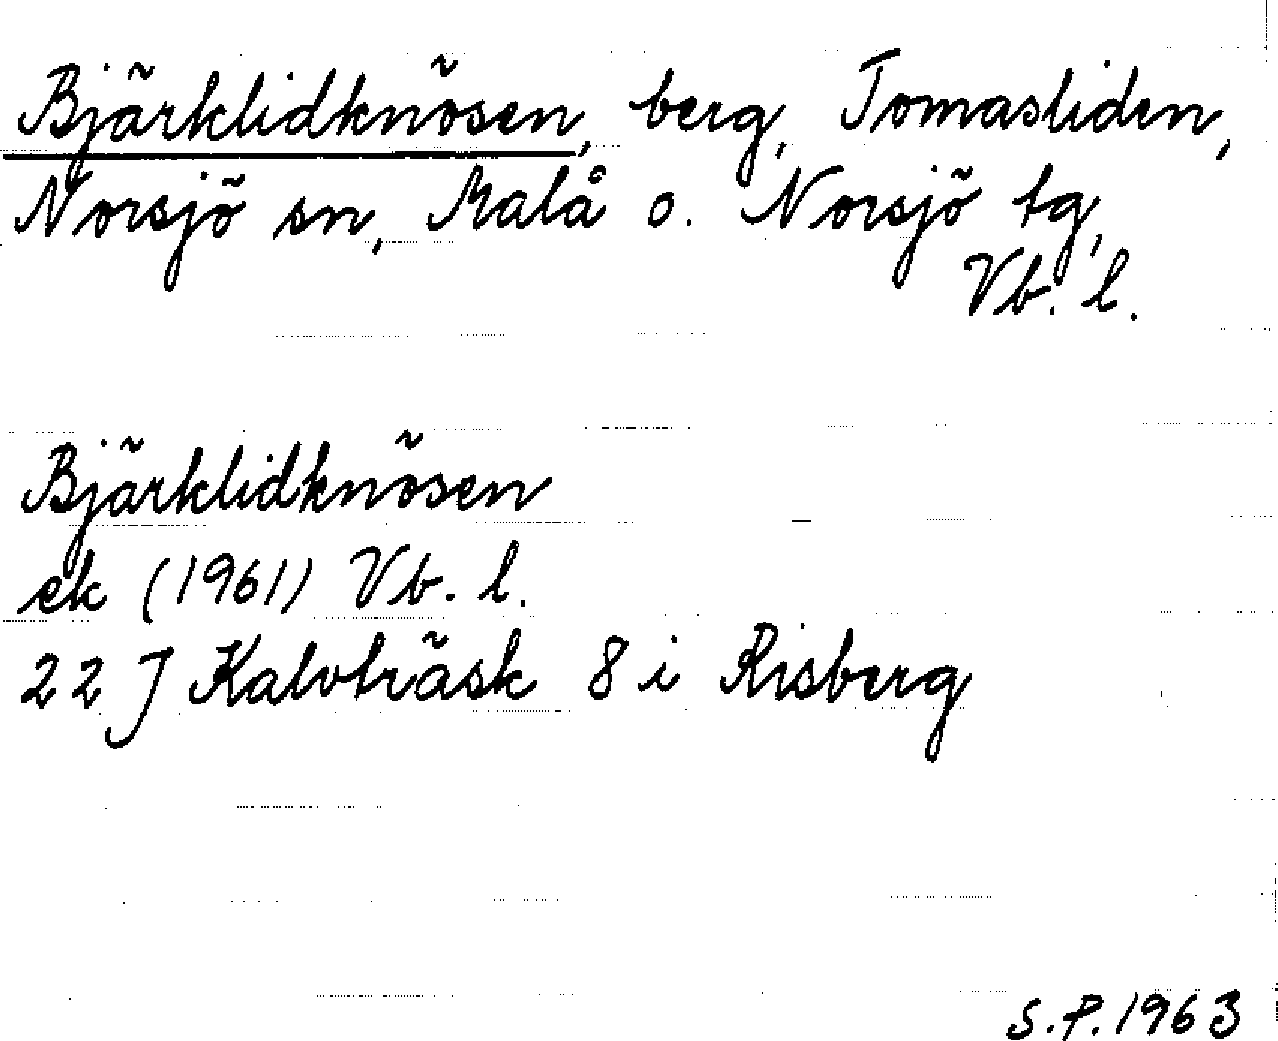 Bjärklidknösen, berg, Tomasliden,
Norsjö sn, Malå o. Norsjö tg,
Vb. l.
Bjärklidknösen
ek (1961) Vb. l.
22 J Kalvträsk 8 i Risberg
S.P. 1963